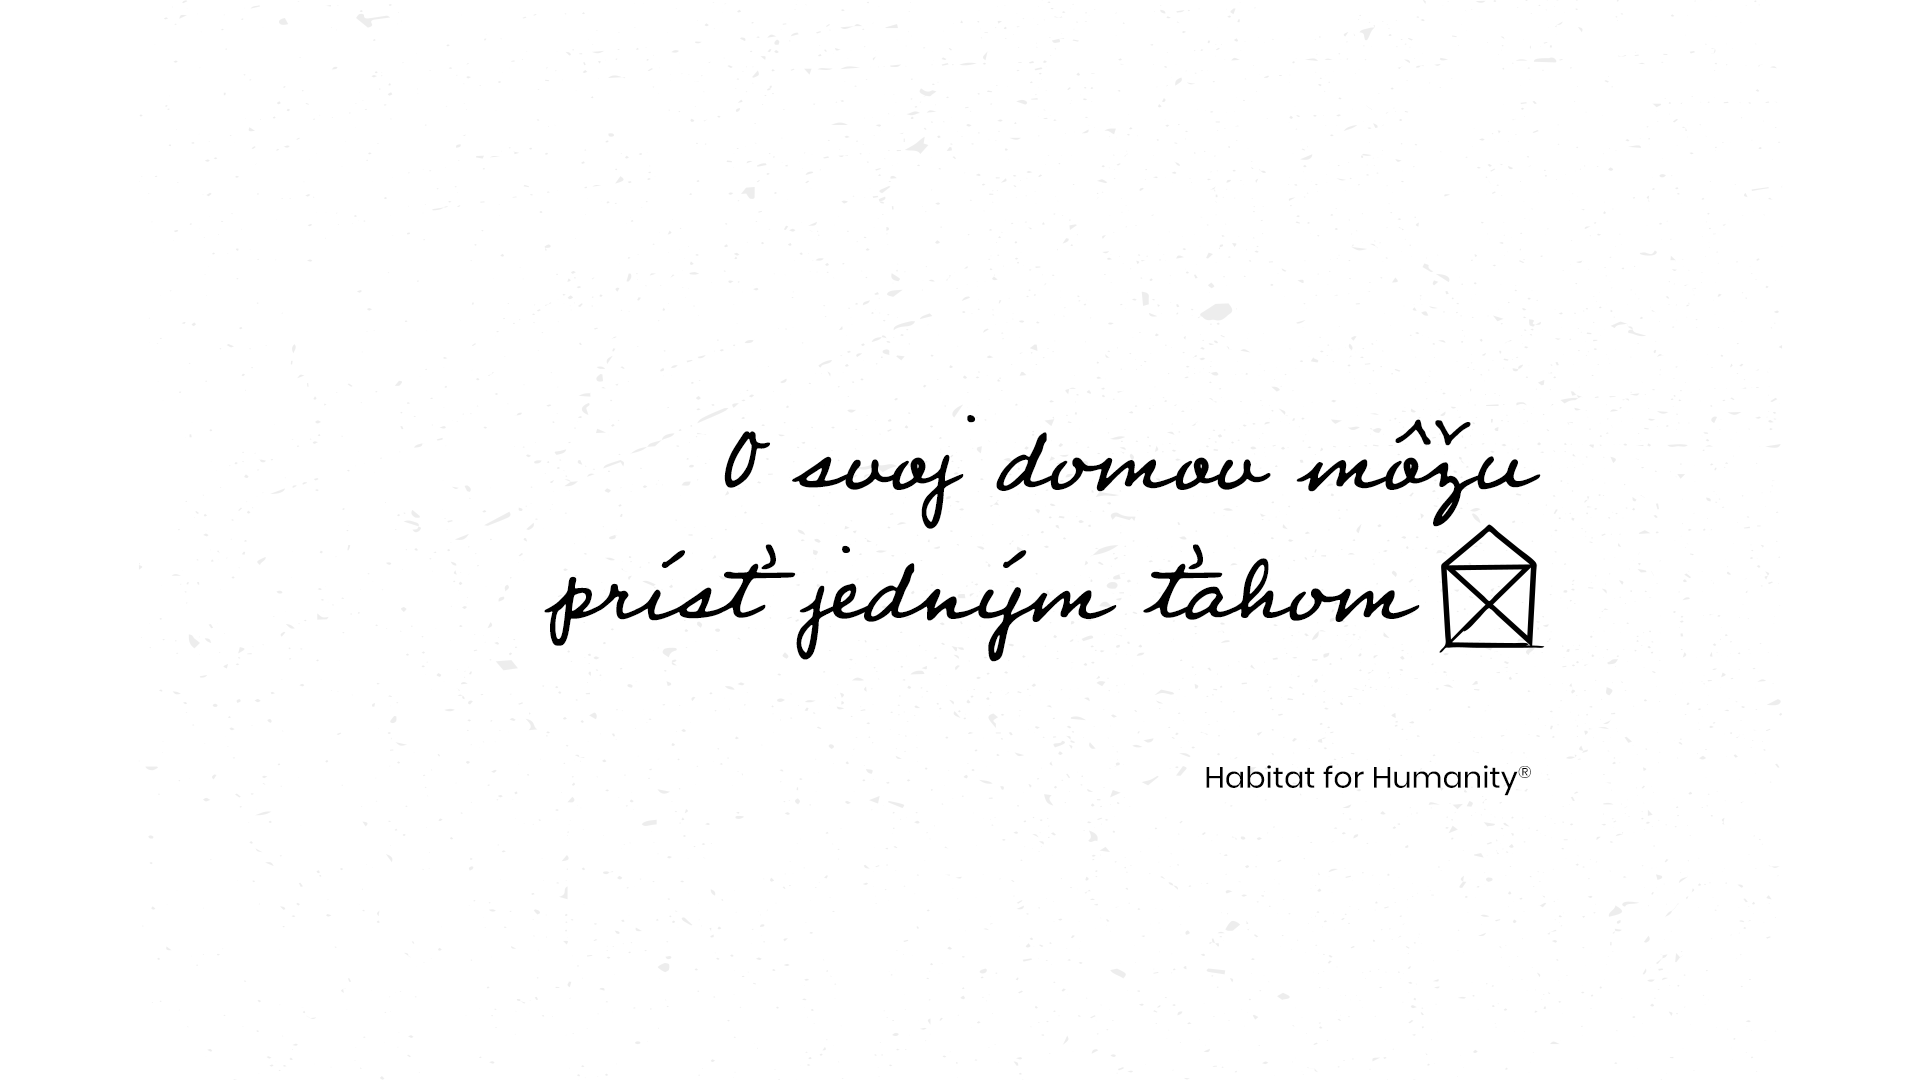 O svoj domov môžu
prísť jedným ťahom
Habitat for Humanity®